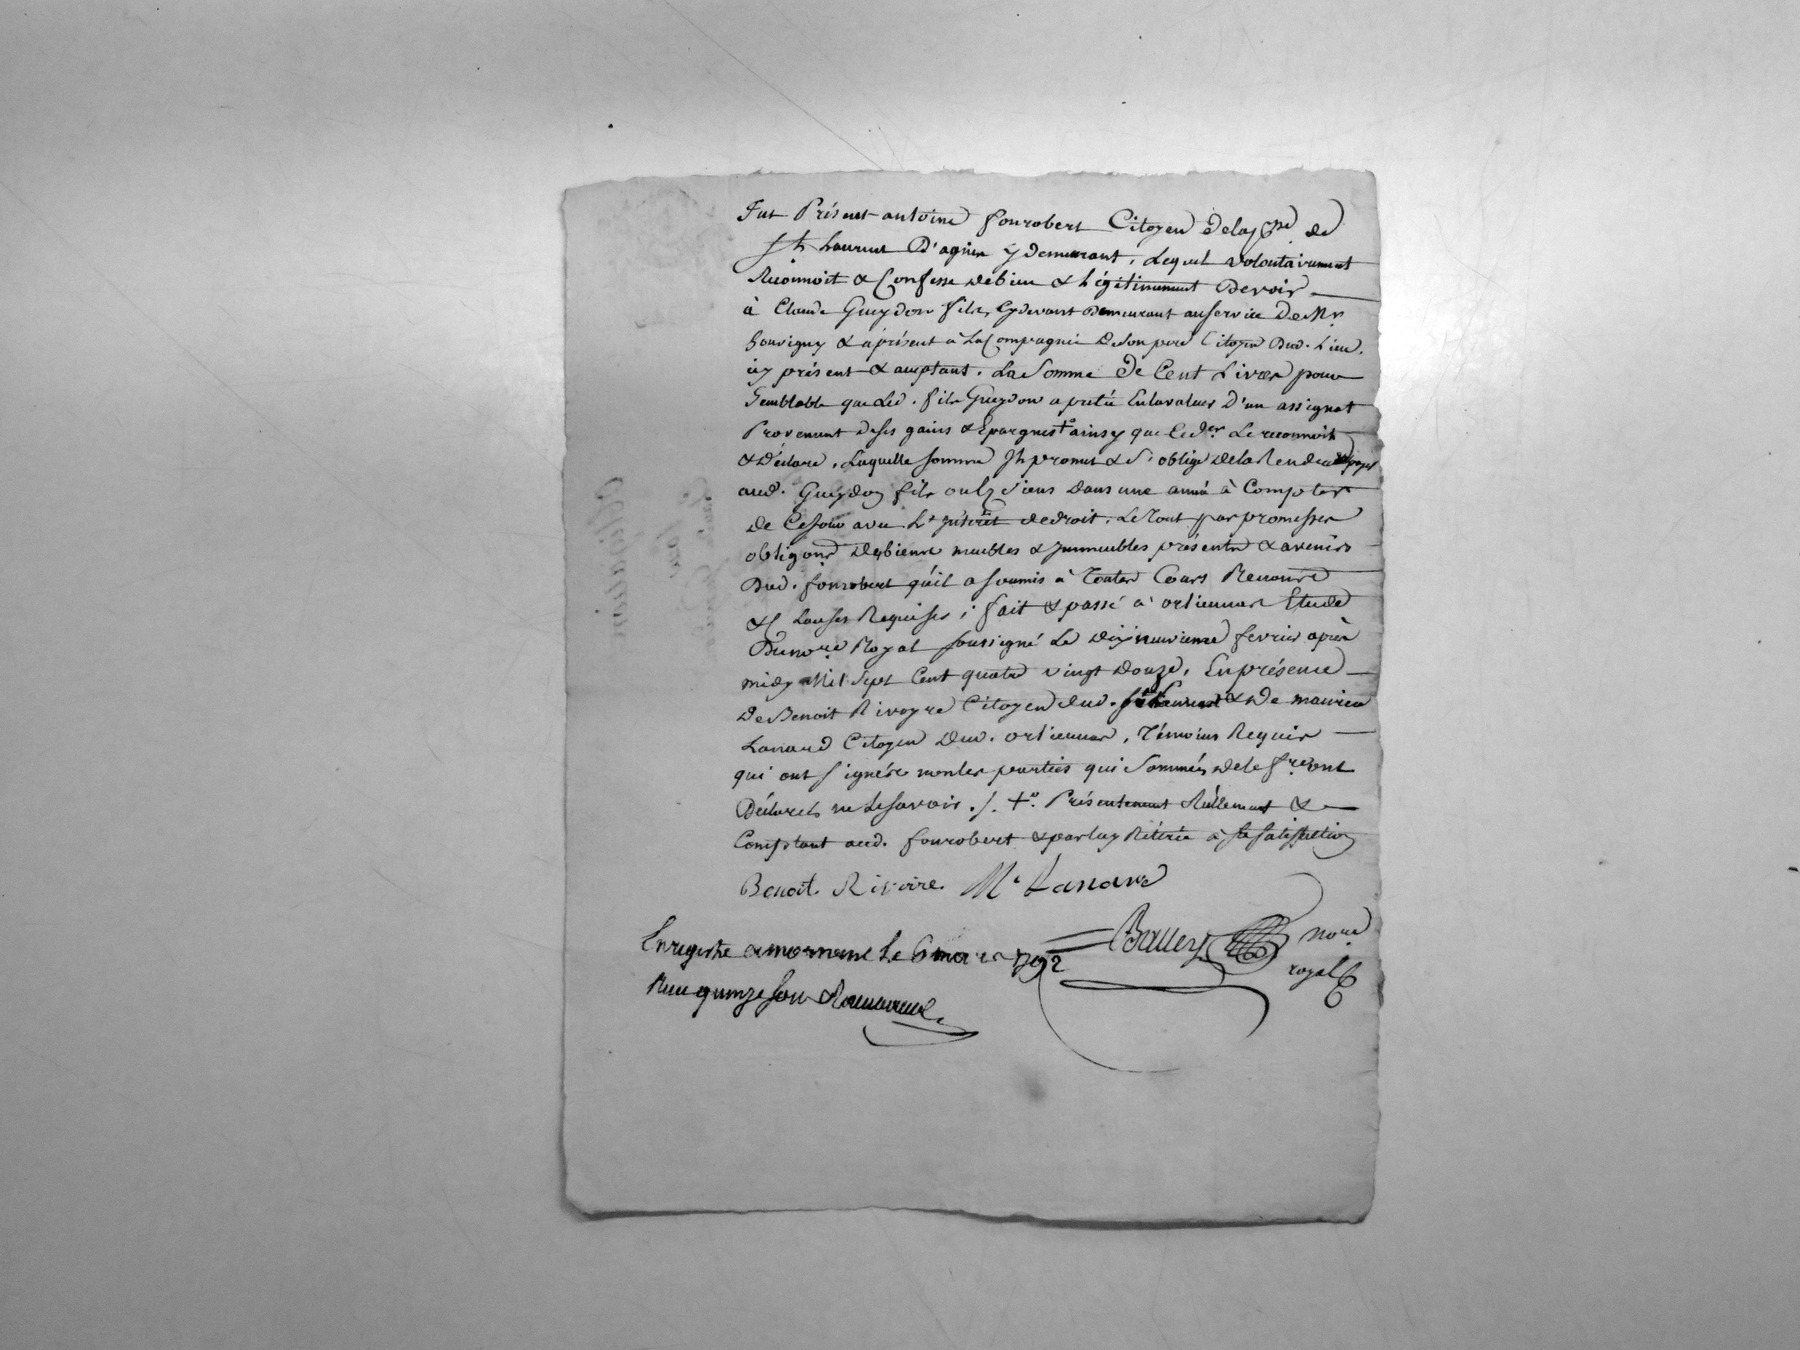 Fut Présent antoine fourobert Citoyen de la p.sse de
St. Laurent D'agnin y demeurant, Lequel volontairement
Reconnoit & Confesse debien & Légitimement Devoir
à Claude Gueydon fils, cydevant Demeurant au service De Mr.
Souvigny & àprésent à La Compagnie De son pere Citoyen Dud. Lieu,
icy présent & aceptant, La Somme De Cent Livres pour
Semblable que Led. fils Gueydon a pretée En la valeur D'un assignat
Provenant De ses gains & Epargnes +o ainsy que led.er Le reconnoit
& Déclare, Laquelle somme Il promet & S'oblige de la Rendre & payer
aud. Gueydon fils ou les siens dans une année à Compter
de Ce Jour avec L'Intérêt de droit, Le Tout par promesses
obligons Des biens meubles & Immeubles présents & avenirs
Dud. fourobert qu'il a soumis à Toutes Cours Renonce
& Clauses Requises; fait & passé à orliennas Etude
Du no.re Royal soussigné Le Dix neuvieme fevrier après
midy Mil Sept Cent quatre vingt Douze, En présence
De Benoit Rivoyre Citoyen dud. St Laurent & De maurice
Lanard Citoyen Dud. orliennas, Témoins Requis
qui ont signés & non les parties qui Sommés de le f.re ont
Déclarés ne Le savoir ./. +o. Présentement Réellement &
Comptant aud. fourobert & par luy Retirée à sa satisfaction
Benoit Rivoire M.e Lanard
Balley no.re
royal
Enregistré a mornant le 6 mars 1792
Reçu quinze sous